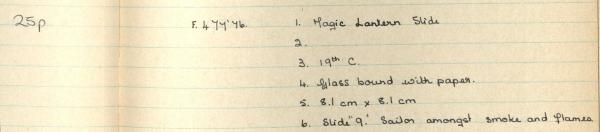 25p F. 477'76. 1. Magic Lantern Slide
2.
3. 19th C.
4. Glass bound with paper.
5. 8.1 cm x 8.1 cm
6. Slide "9." Sailor amongst smoke and flames